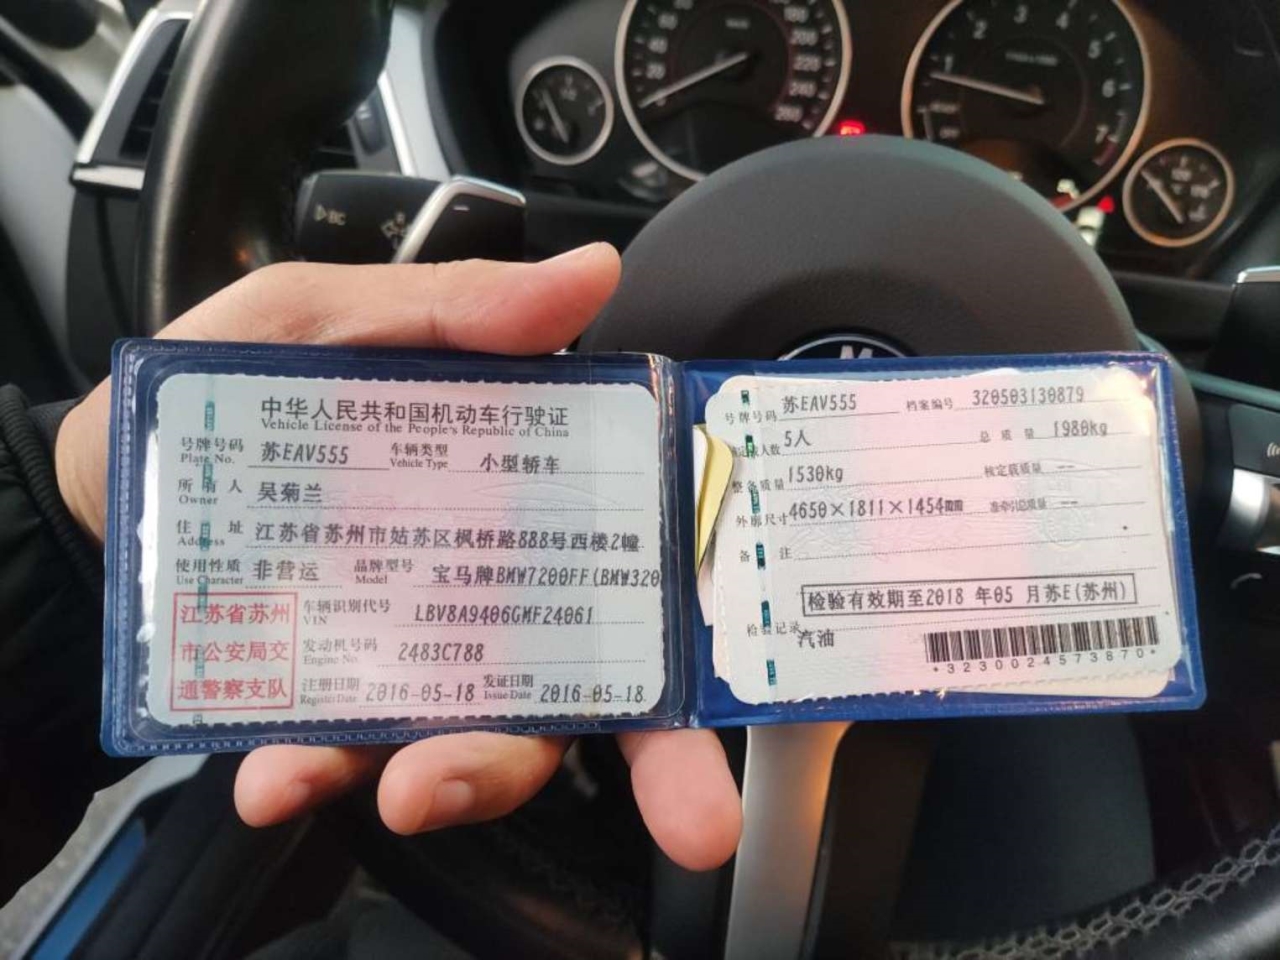 中华人民共和国机动车行驶证
Vehicle License of the People's Republic of China
号牌号码 苏EAV555 车辆类型 小型轿车
Plate No. Vehicle Type
所有人 吴菊兰
Owner
住址 江苏省苏州市姑苏区枫桥路888号西楼2幢
Address
使用性质 非营运 品牌型号 宝马牌BMW7200FF(BMW320
Use Character Model
江苏省苏州
市公安局交
通警察支队
车辆识别代号 LBV8A9406GMF24061
VIN
发动机号码 2483C788
Engine No.
注册日期 2016-05-18 发证日期 2016-05-18
Register Date Issue Date
号牌号码 苏EAV555 档案编号 320503130879
人数 5人 总质量 1980kg
整备质量 1530kg 核定载质量 --
外廓尺寸 4650×1811×1454mm 准牵引总质量 --
备注
检验有效期至2018年05月苏E(苏州)
检验记录
汽油
*3230024573870*
BC
M
20
40
60
200
220
240
260
1
2
3
4
5
6
7